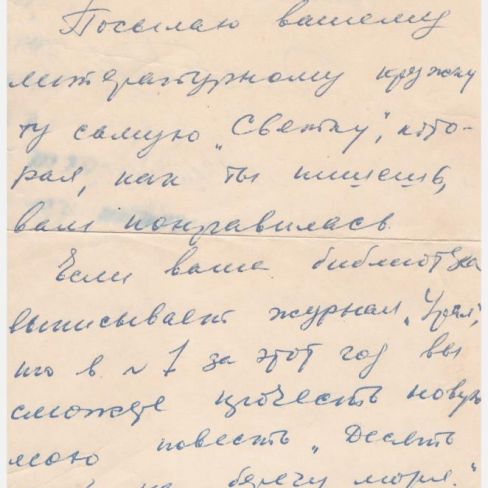 Посылаю вашему
литературному кружку
ту самую „Светку", кото-
рая, как ты пишешь,
вам понравилась.
Если ваша библиотека
выписывает журнал „Урал",
то в № 7 за этот год вы
сможете прочесть новую
мою повесть „Десять
на берегу моря."